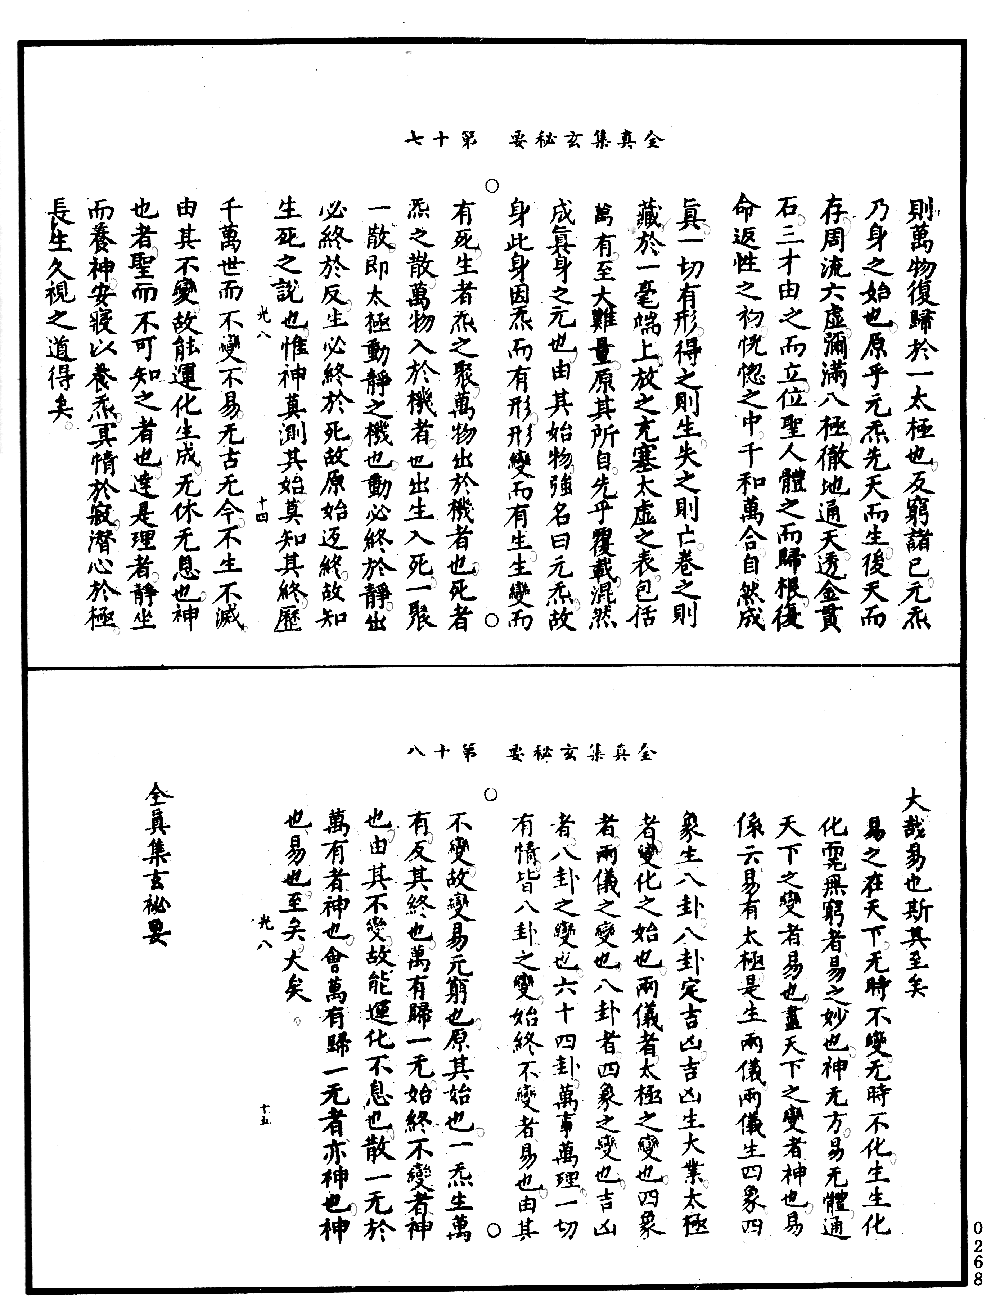 全真集玄秘要　第十七
則萬物復歸於一太極也反窮諸已元炁
乃身之始也原乎元炁先天而生後天而
存周流六虛彌滿八極徹地通天透金貫
石三才由之而立位聖人體之而歸根復
命返性之初恍惚之中千和萬合自然成
真一切有形得之則生失之則亡卷之則
藏於一毫端上放之充塞太虛之表包括
萬有至大難量原其所自先乎覆載混然
成真身之元也由其始物強名曰元炁故
身此身因炁而有形形變而有生生變而
有死生者炁之聚萬物出於機者也死者
炁之散萬物入於機者也出生入死一聚
一散即太極動靜之機也動必終於靜出
必終於反生必終於死故原始返終故知
生死之說也惟神莫測其始莫知其終歷
光八　十四
千萬世而不變不易无古无今不生不滅
由其不變故能運化生成无休无息也神
也者聖而不可知之者也達是理者靜坐
而養神安寢以養炁冥情於寂潛心於極
長生久視之道得矣
全真集玄秘要　第十八
大哉易也斯其至矣
易之在天下无時不變无時不化生生化
化而無窮者易之妙也神无方易无體通
天下之變者易也盡天下之變者神也易
係云易有太極是生兩儀兩儀生四象四
象生八卦八卦定吉凶吉凶生大業太極
者變化之始也兩儀者太極之變也四象
者兩儀之變也八卦者四象之變也吉凶
者八卦之變也六十四卦萬事萬理一切
有情皆八卦之變始終不變者易也由其
不變故變易无窮也原其始也一炁生萬
有反其終也萬有歸一无始終不變者神
也由其不變故能運化不息也散一无於
萬有者神也會萬有歸一无者亦神也神
也易也至矣大矣
光八　十五
全真集玄祕要
0268